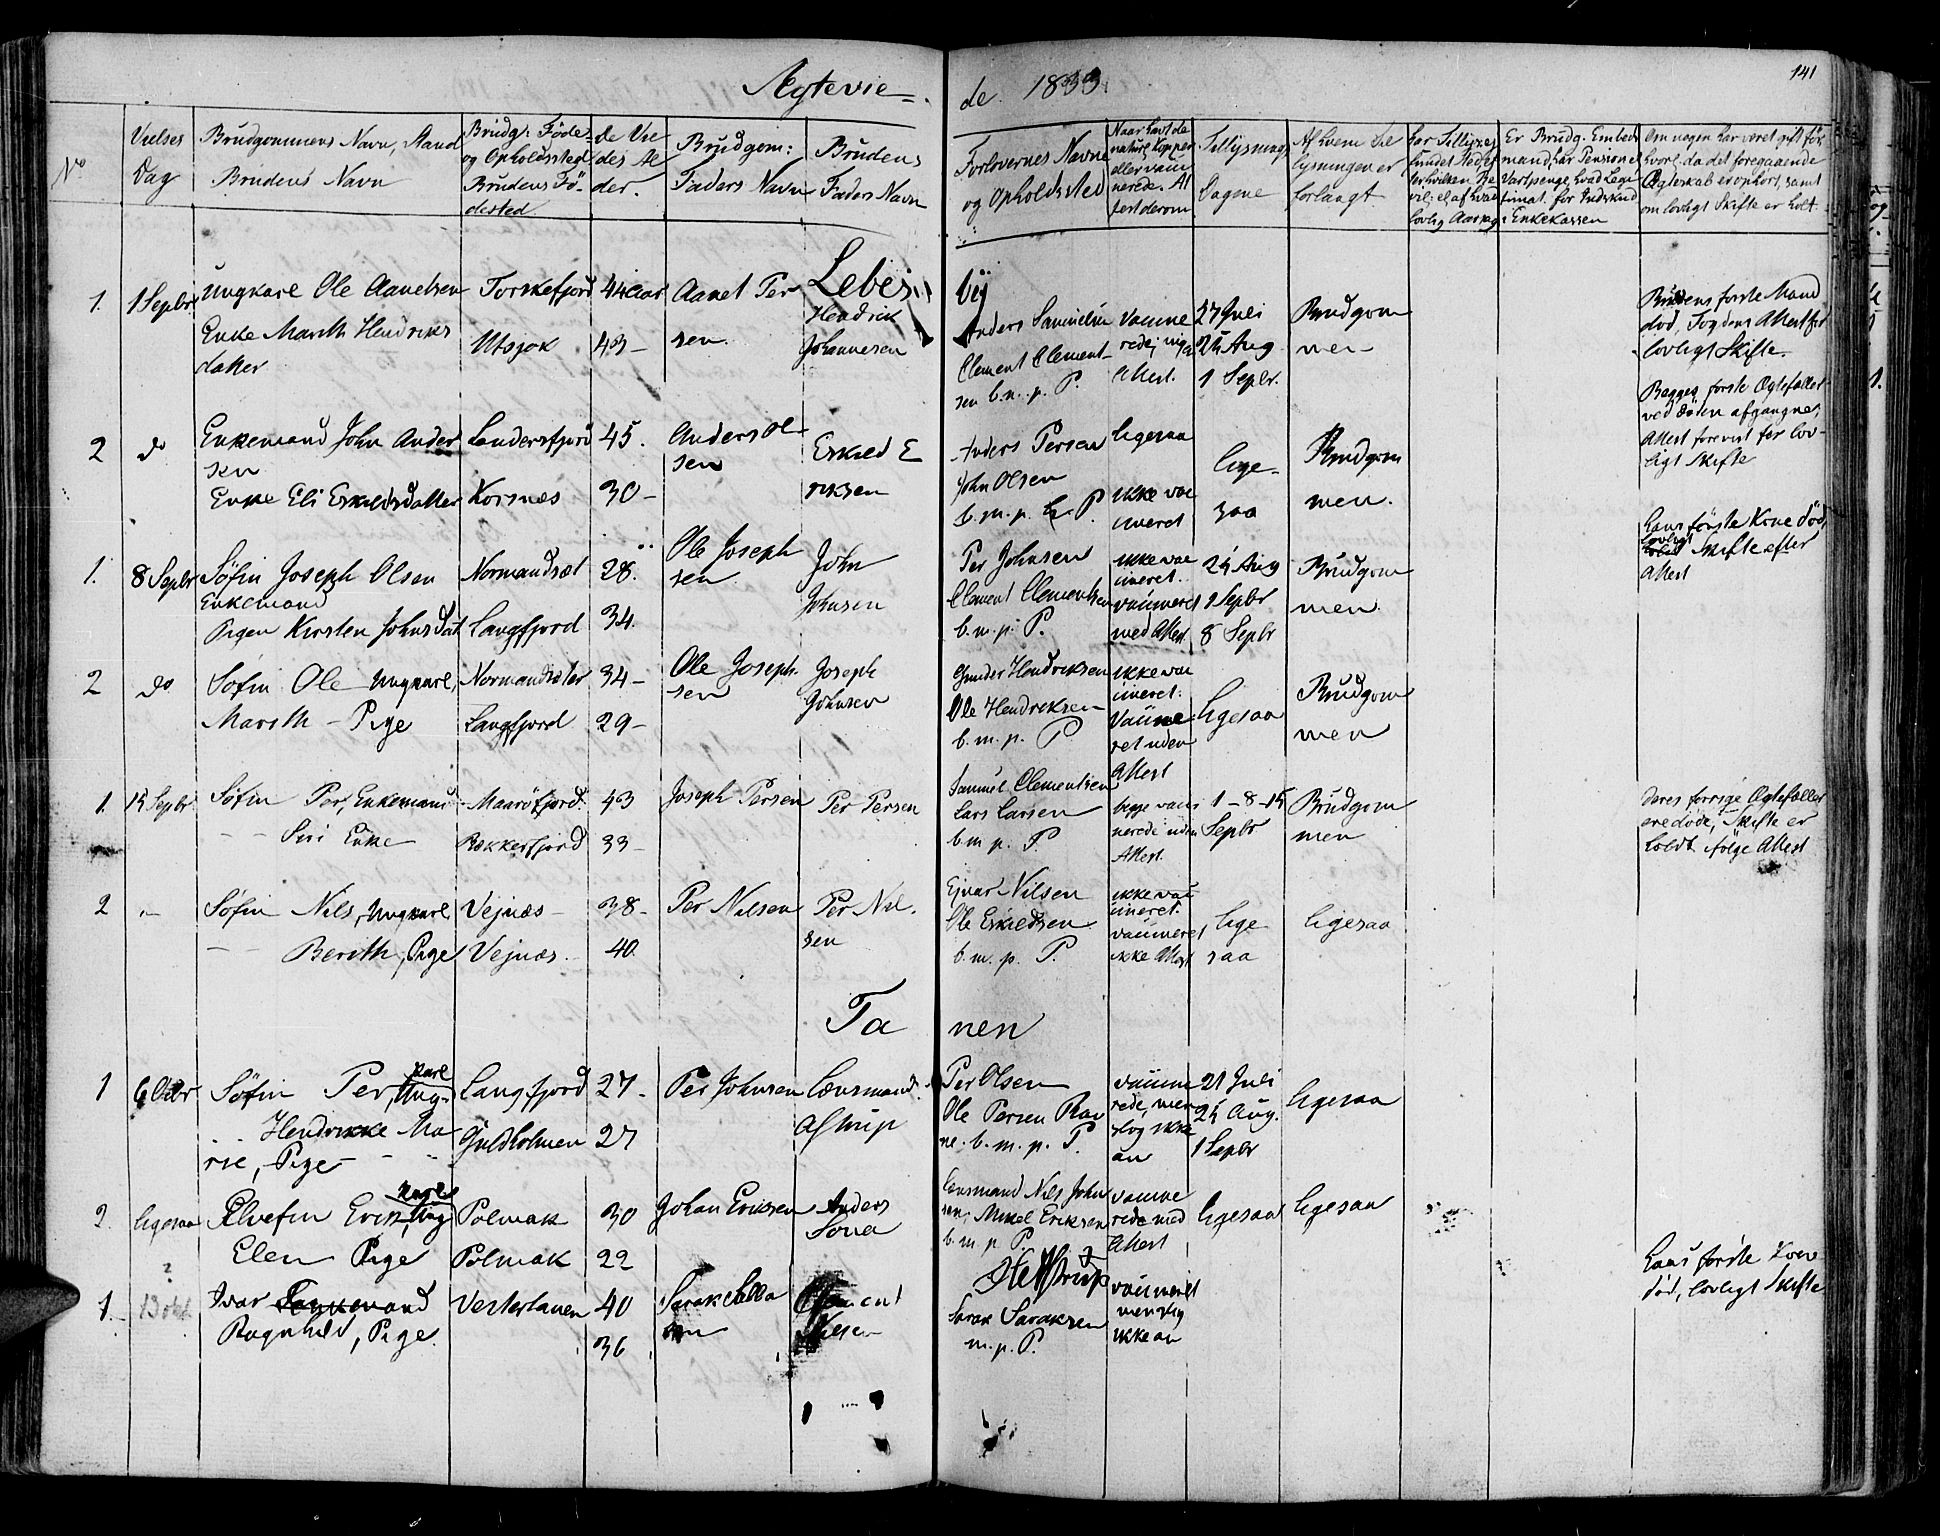 Ægtevie-
de 1833
141
No
Vielses Dag
Brudgommens Navn, Stand
Brudens Navn
Brudg: Føde-
og Opholdssted
Brudens Fø-
dested
de Vie
des Al
der.
Brudgom:
Faders Navn
Brudens
Faders Navn
Forlovernes Navne
og Opholdssted
Naar havt de
naturl. Kopper
eller vacci
nerede. At
test derom
Tillysnings
Dagene
Af hvem Til
lysningen er
forlangt
Er Brudg. Embeds
mand, har Pension el
Vartpenge, hvad Legi
timat. for Indskud
i Enkekassen
Om nogen har været gift før,
hvorl. da det foregaaende
Ægteskab er ophört, samt
om lovligt Skifte er holdt
Lebes
by
1. 1 Sepbr
Ungkarl Ole Aanetsen
Enke Marith Hendriks
datter
Torskefjord
Utsjok
44 aar
43-
Aanet Per
sen.
Hendrik
Johannesen
Anders Samuelsen
Clement Clement-
sen b. m. p. P.
Vaccine
rede,
Attest.
27 Juli
25 Aug
1 Sepbr.
Brudgom
men
Brudens første Mand
död, Fogdens Attest for
lovligt Skifte.
2 do
Enkemand John Ander
sen
Enke Eli Eskildsdatter
Landersfjord
Korsnæs
45.
30-
Anders Ol-
sen
Eskild E
riksen
Anders Persen
John Olsen
b. m. p. P.
ligesaa
ikke vac
cineret
lige-
saa
Brudgom
men.
Begges første Ægtefæller
ved Döden afgangne,
Attest forevist for lov-
ligt Skifte
1. 8 Sepbr
Söfin Joseph Olsen
Enkemand
Pigen Kirsten Johnsdat
Normandsæt
Langfjord
28.
34.
Ole Joseph
sen
John
Johnsen
Per Johnsen
Clement Clementsen
b. m. p. P.
ikke vac
cineret.
vaccineret
med Attest
25 Aug
1 Sepbr
8 Sepbr
Brudgom
men.
Hans förste Kone död,
lovligt
Skifte efter
Attest
2 do
Söfin Ole Ungkarl,
Marith - Pige
Normandsæter
Langfjord
34-
29-
Ole Joseph
sen
Joseph
Johnsen
Gunder Hendriksen
Ole Hendriksen
b. m. p. P
ikke vac
cineret.
Vaccine
ret uden
Attest
ligesaa
Brudgom
men
1. 15 Sepbr.
Söfin Per, Enkemand
- - Siri Enke
Maaröfjord.
Bekkerfjord
43
33-
Joseph Persen
Per Persen
Samuel Clementsen
Lars Larsen
b. m. p. P
begge vacci
nerede uden
Attest.
1-8-15
Sepbr
Brudgom
men
deres forrige Ægtefæller
ere döde, Skifte er
holdt ifølge Attest
2 -
Söfin Nils, Ungkarl,
- - Berith, Pige
Vejnæs-
Vejnæs.
38-
40.
Per Nilsen
Per Nil.
sen
Ejnar Nilsen
Ole Eskildsen
b. m. p. P.
ikke vac
cineret.
vaccineret
ikke Attest
lige
saa
ligesaa
Ta
nen
1 6 Octbr
Söfin Per, Ung-
karl
Hendrikke Ma
rie, - Pige -
Langfjord
Guldholmen
27-
27
Per Johnsen
Lænsmand
Astrup
Per Olsen
Ole Persen Rav
na. b. m. p. P.
vaccine
rede, men
slog ikke
an
21 Juli
25 Aug.
1 Sepbr
ligesaa
2. ligesaa
Elvefin Erik, Ung
karl
Elen Pige
Polmak
Polmak
30
22
Johan Eriksen
Anders
Lænsmand Nils John
sen, Mikel Eriksen
b. m. p. P.
vaccine
rede med
Attest
ligesaa
ligesaa
1. 13 okt
Ivar
Ragnhild, Pige.
Vestertanen
40
36
Sarak
sen
Clement
Nilsen
Sarak Saraksen
m. p. P.
vaccineret
men slog
ikke an
Hans første Kone
död, lovligt Skifte